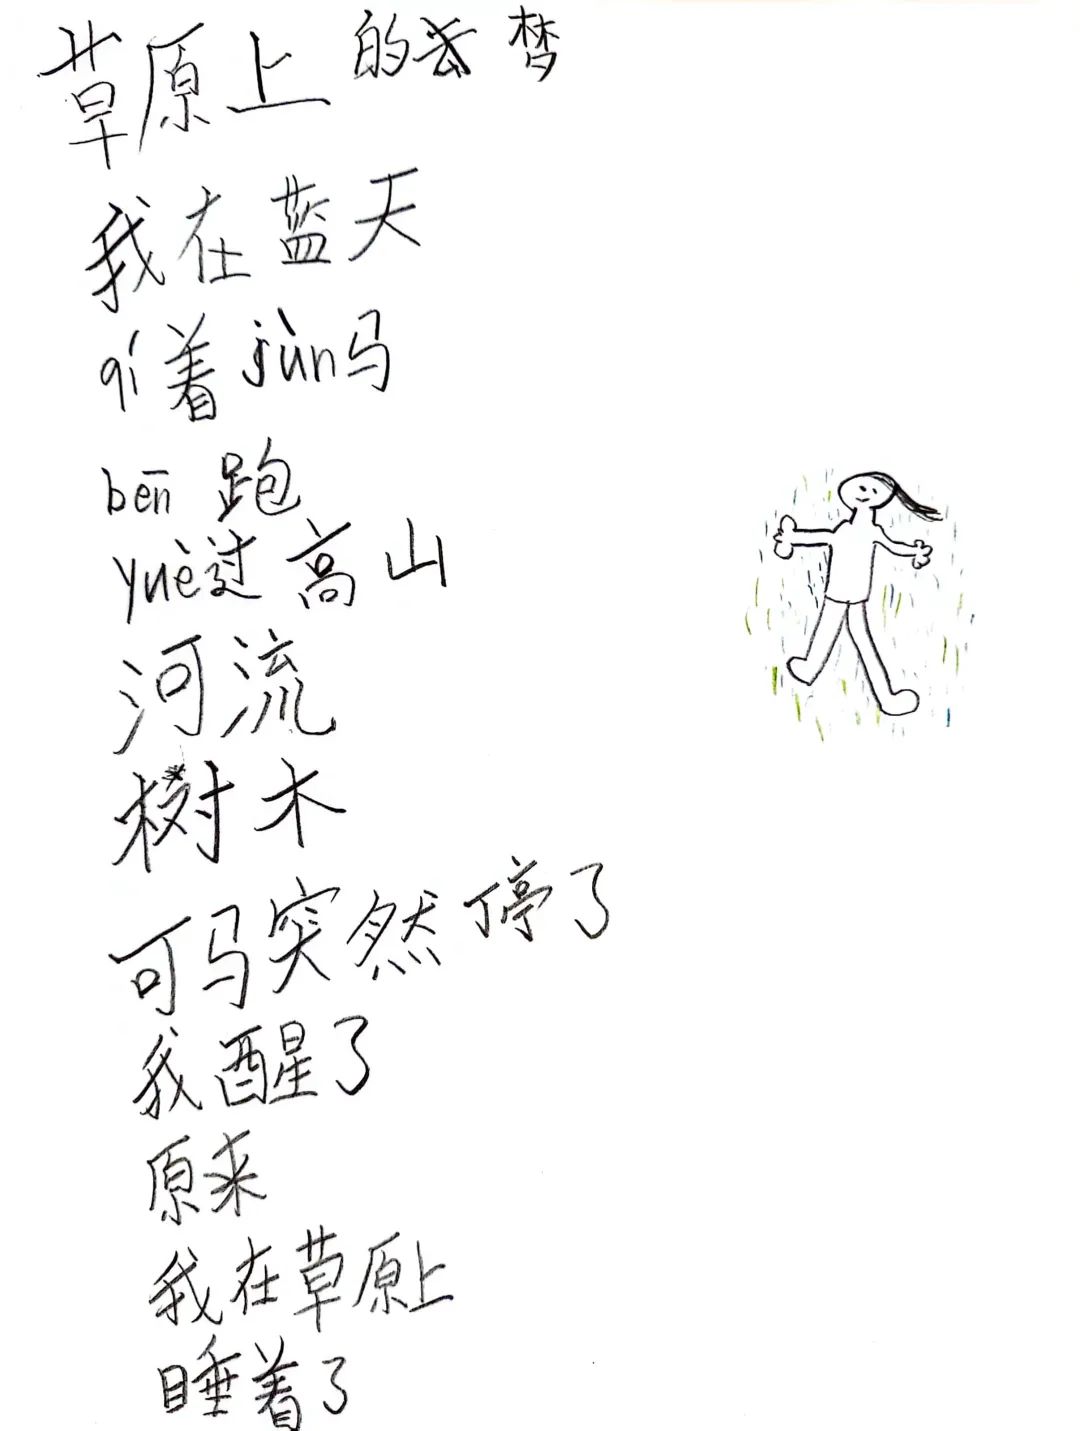 草原上的梦
我在蓝天
qí着jùn马
bēn跑
yuè过高山
河流
树木
可马突然停了
我醒了
原来
我在草原上
睡着了